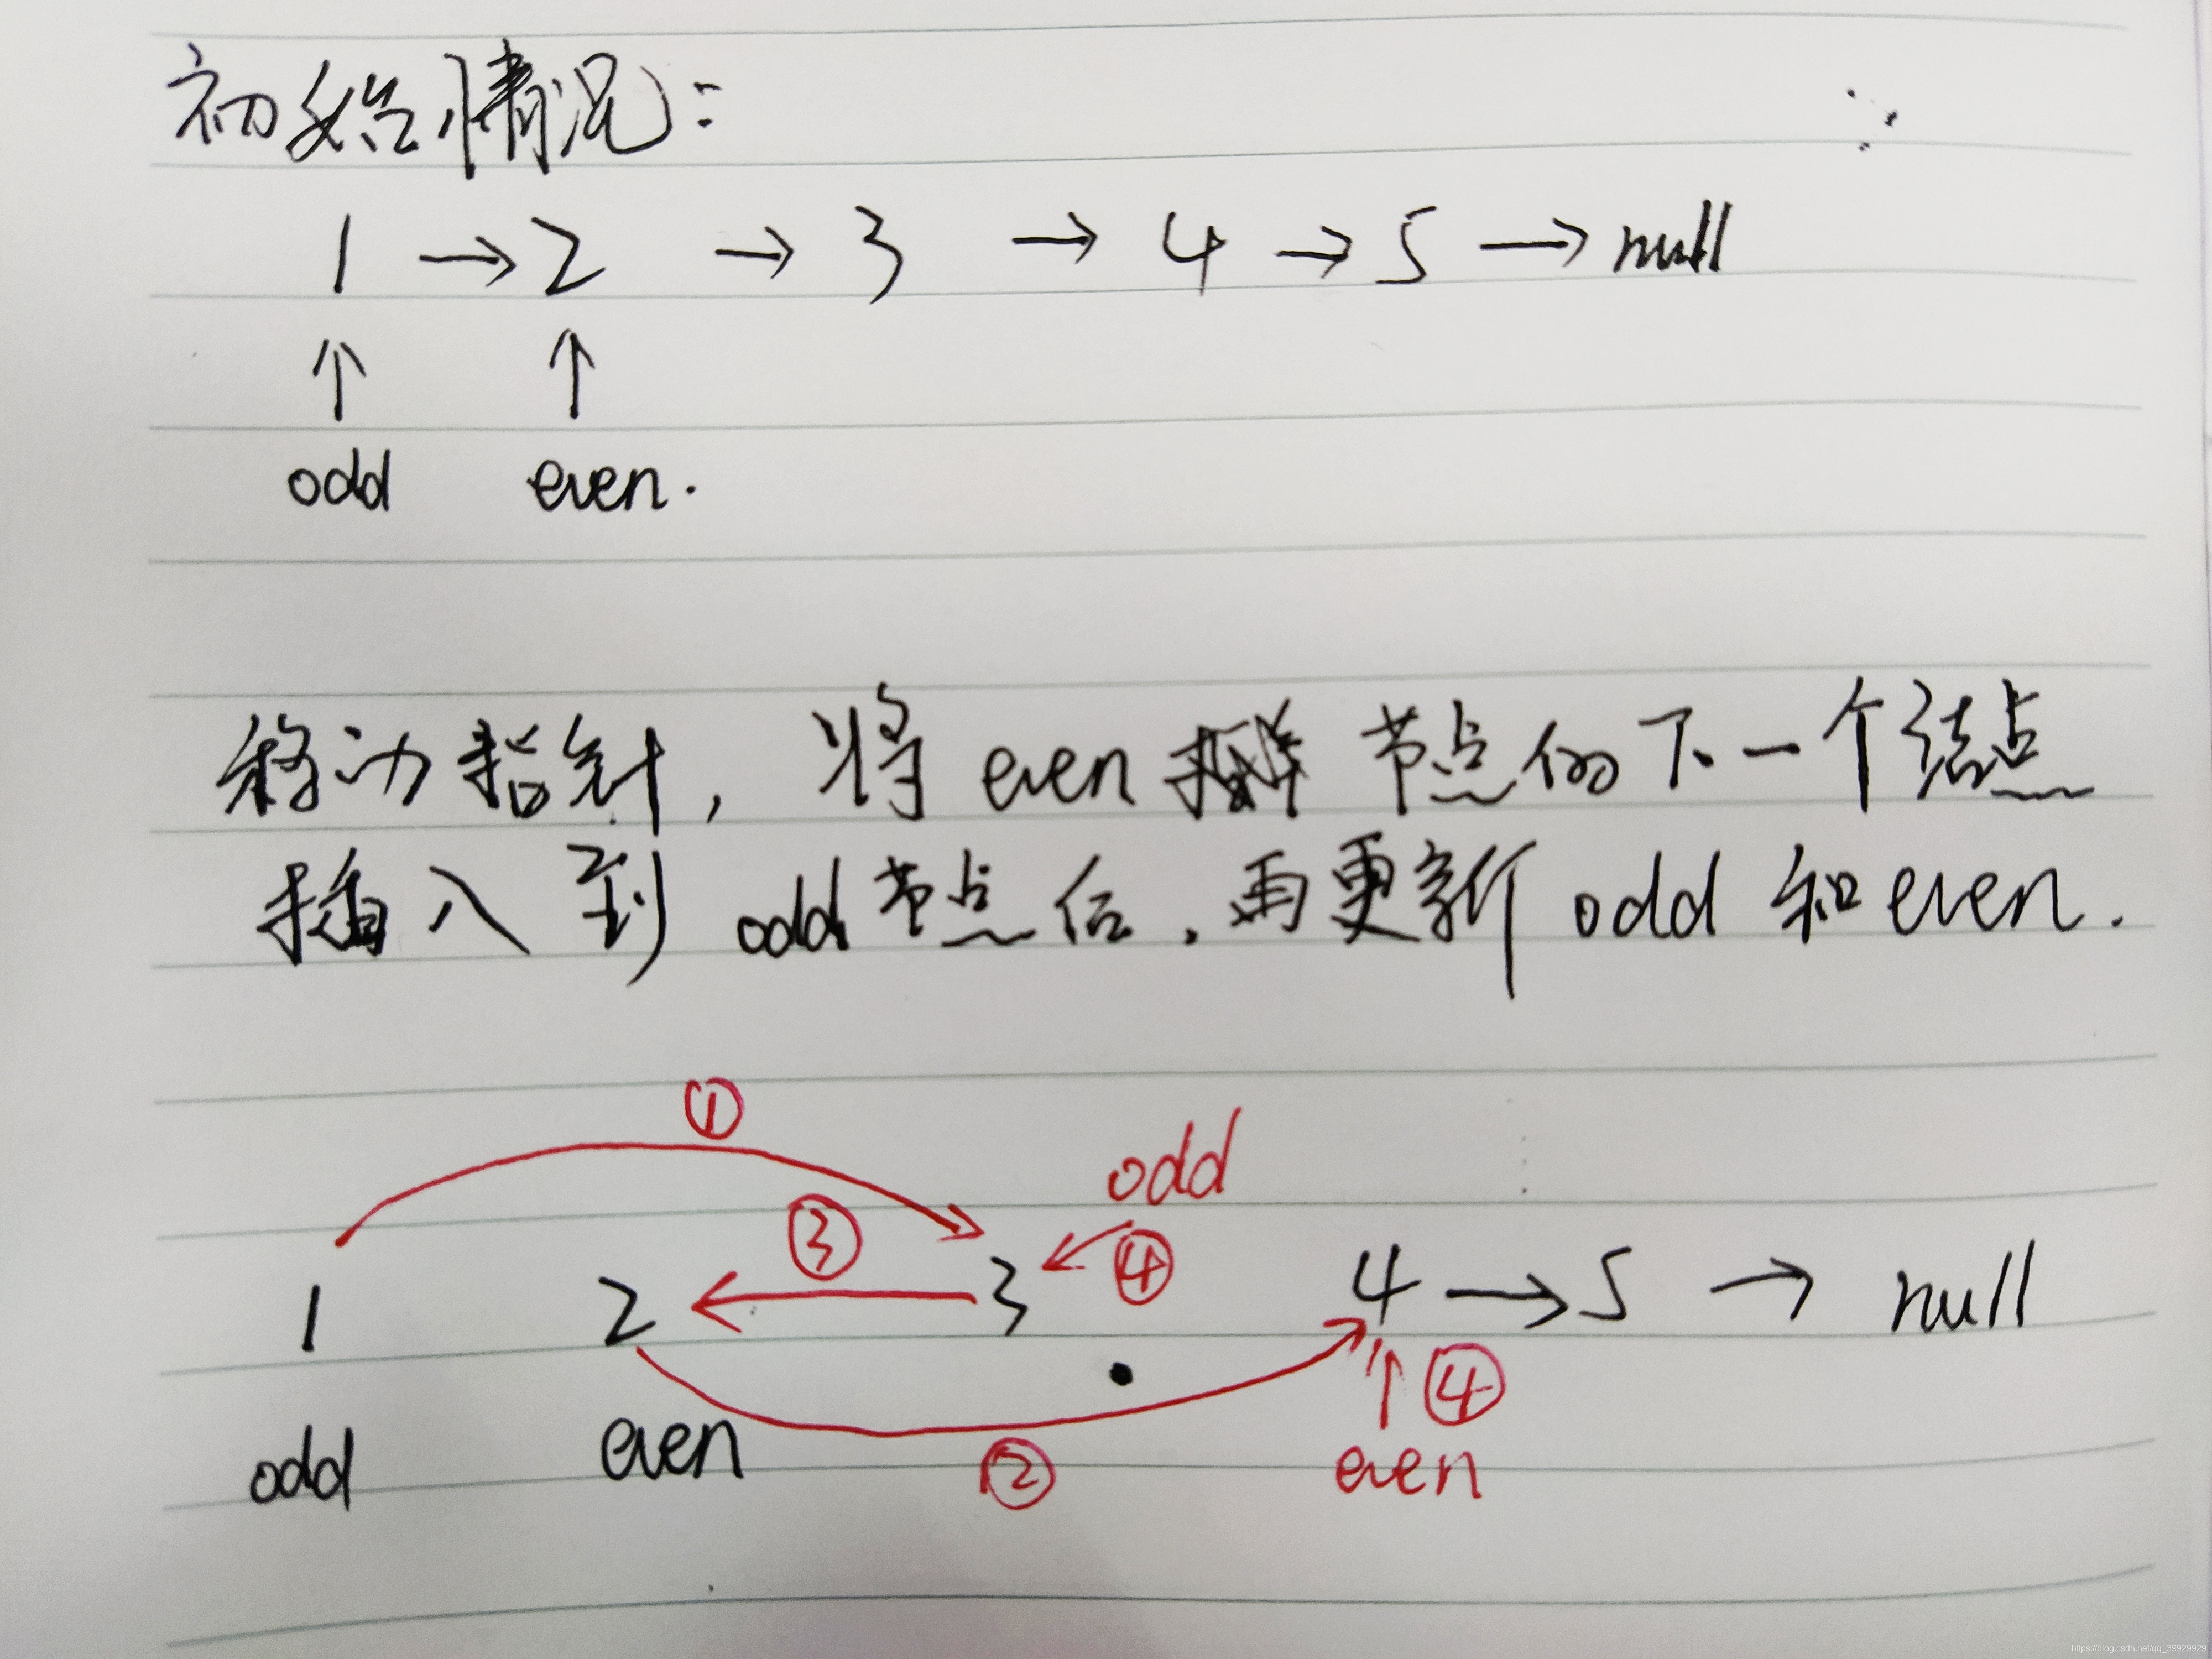 初始情况:
1 → 2 → 3 → 4 → 5 → null
↑ ↑
odd even.
移动指针, 将 even 节点的下一个结点
插入到 odd 节点后, 再更新 odd 和 even.
①
odd
③
④
1 2 ← 3 4 → 5 → null
④
odd even ② even
https://blog.csdn.net/qq_39929929